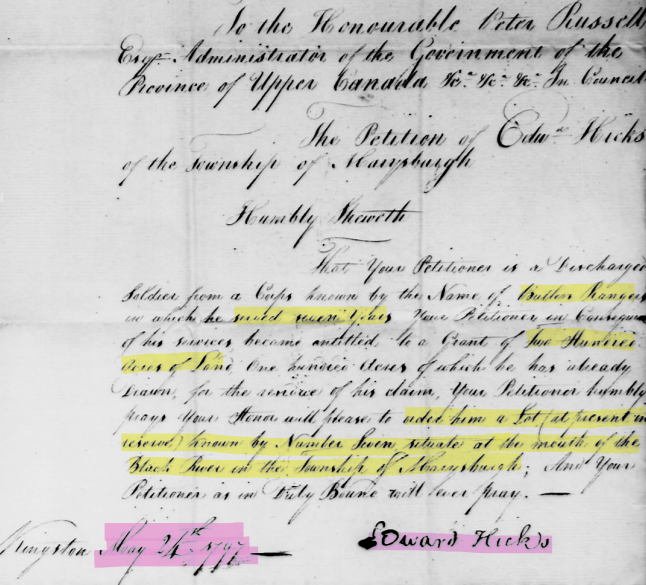 To the Honourable Peter Russell
Esqr. Administrator of the Government of the
Province of Upper Canada &ca. &ca. &ca. In Council
The Petition of Edwd. Hicks
of the Township of Marysburgh
Humbly Sheweth
That Your Petitioner is a Discharged
Soldier from a Corps known by the Name of Butlers Rangers
in which he served seven Years Your Petitioner in Consequen
of his services became entitled to a Grant of Two Hundred
Acres of Land One hundred Acres of which he has already
Drawn, for the residue of his claim, Your Petitioner humbly
prays Your Honor will please to order him a Lot (at present in
reserve) known by Number Seven situate at the mouth of the
Black River in the Township of Marysburgh; And Your
Petitioner as in Duty Bound will ever pray. —
Kingston May 24th 1797 — Edward Hicks